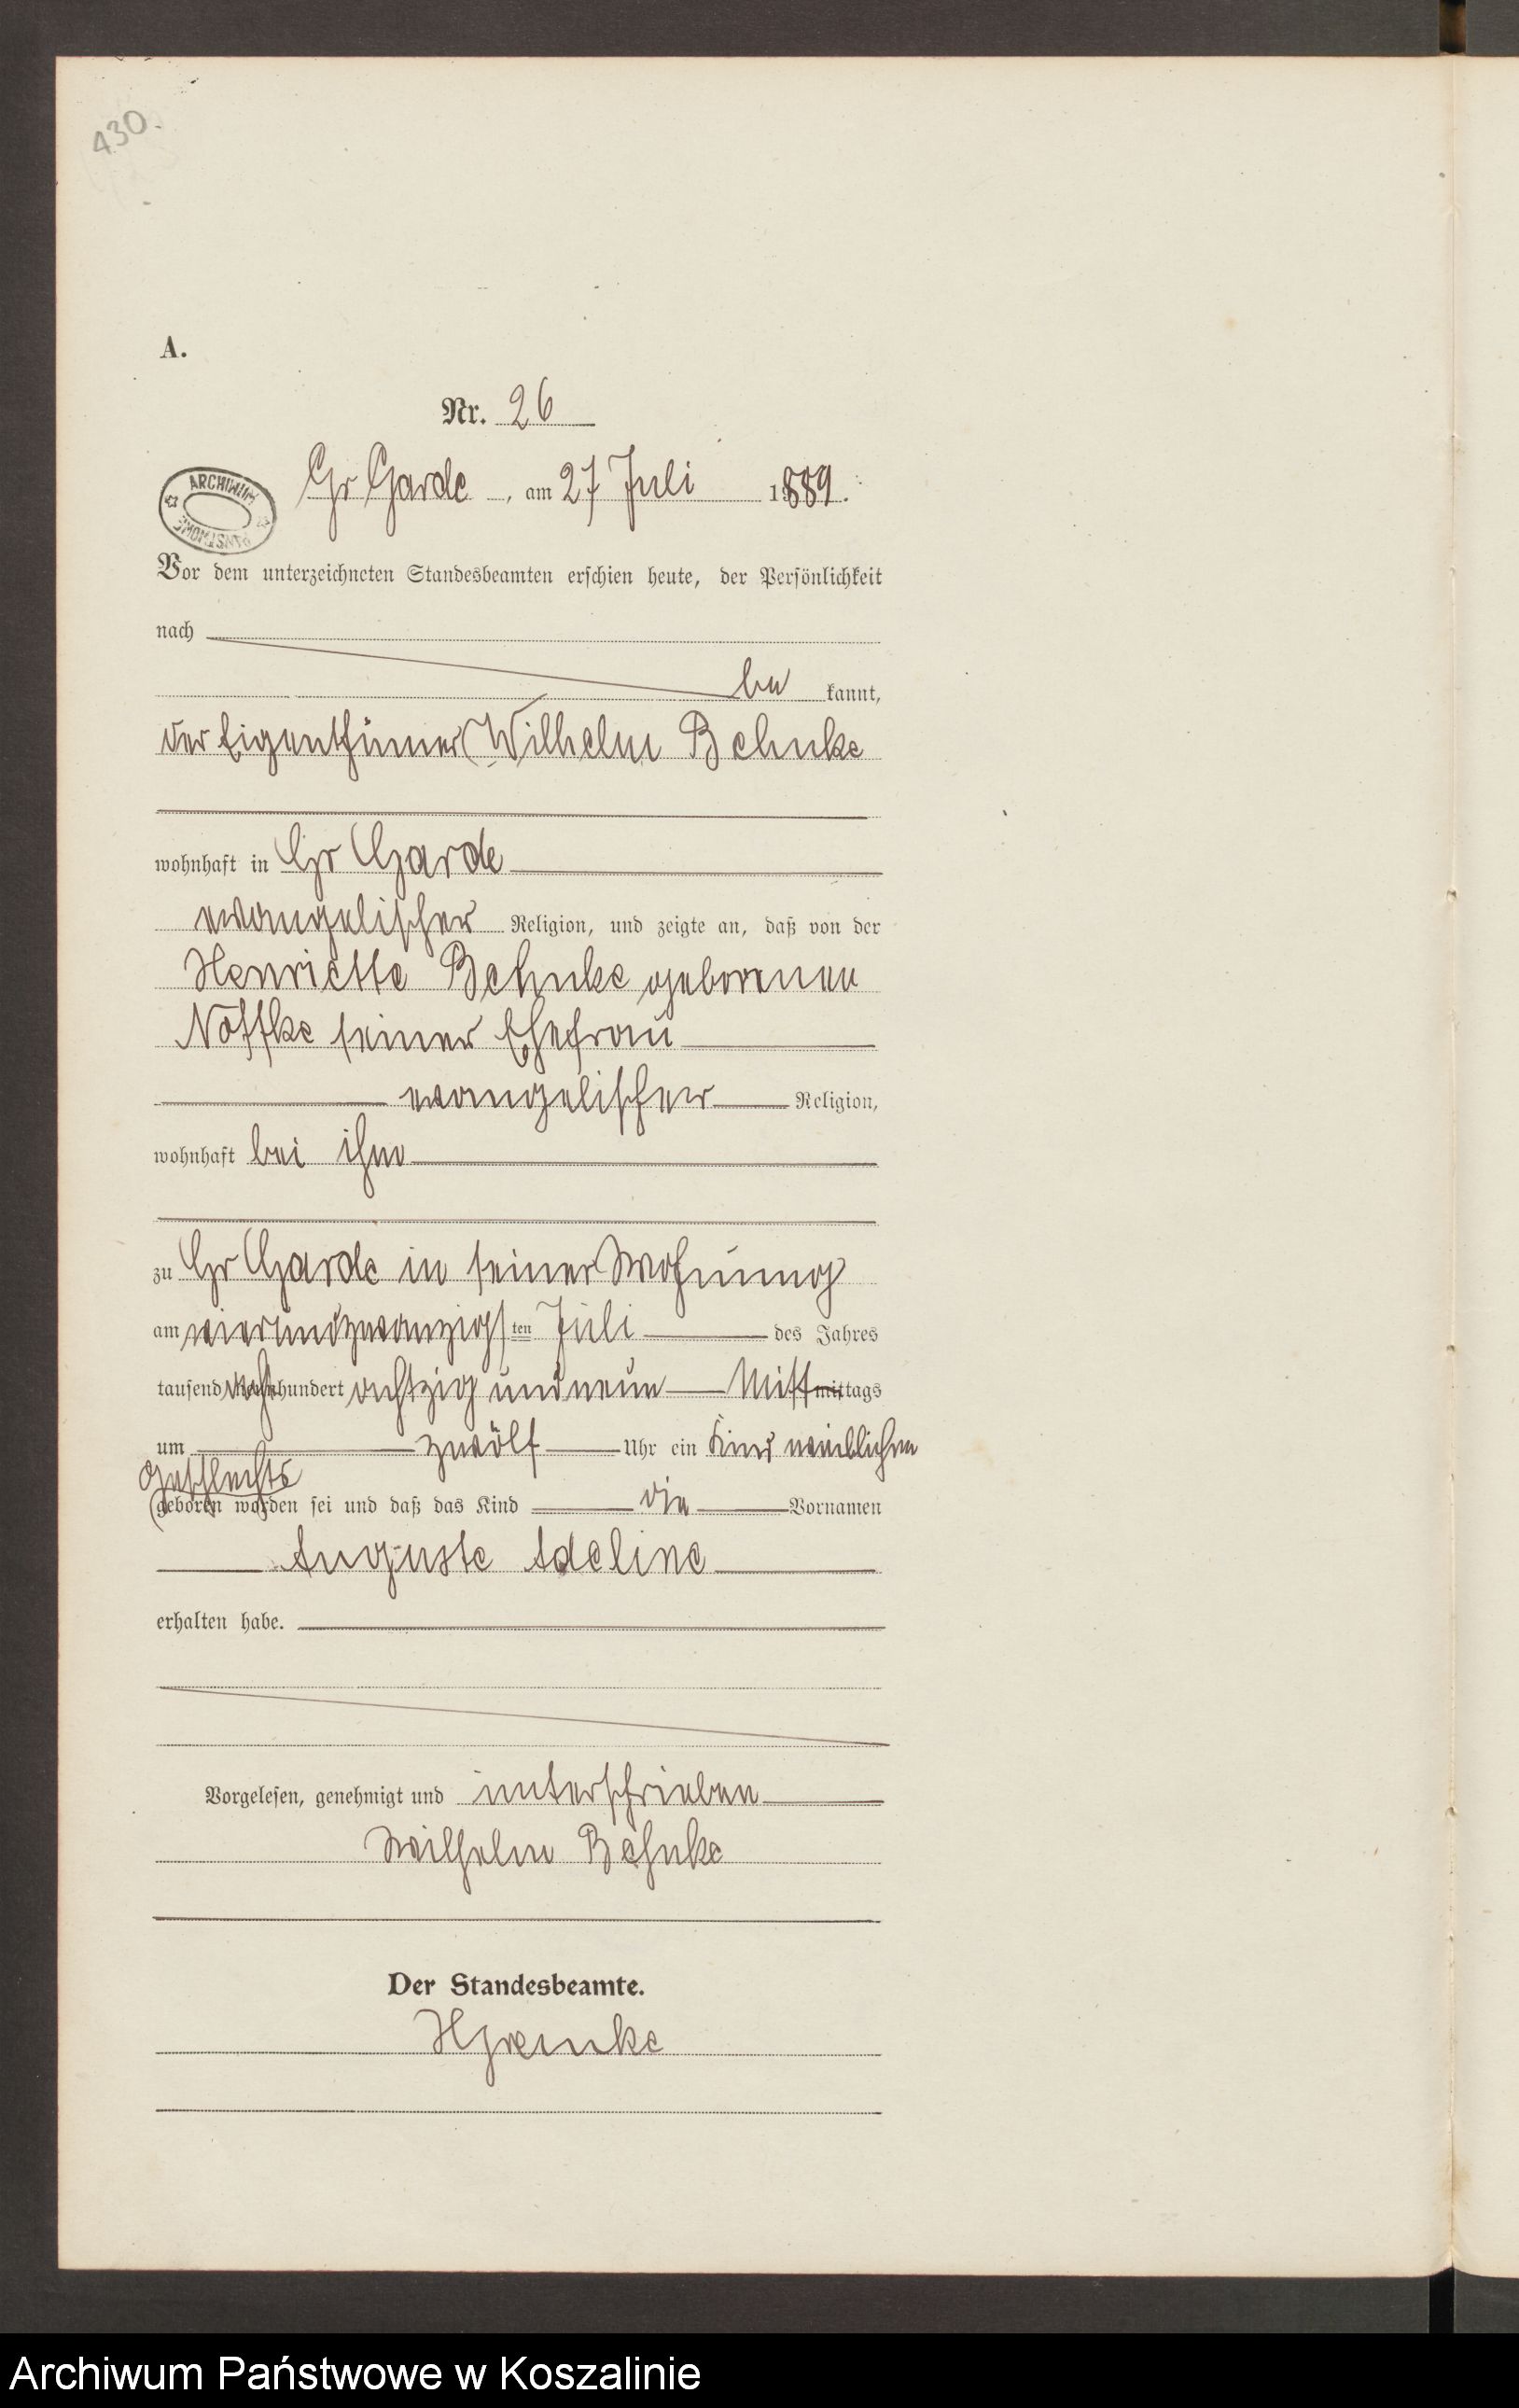 430.
A.
Nr. 26
ARCHIWUM PAŃSTWOWE
Gr Garde, am 27 Juli 1889.
Vor dem unterzeichneten Standesbeamten erschien heute, der Persönlichkeit
nach
be kannt,
der Eigenthümer Wilhelm Behnke
wohnhaft in Gr Garde
evangelischer Religion, und zeigte an, daß von der
Henriette Behnke geborenen
Noffke seiner Ehefrau
evangelischer Religion,
wohnhaft bei ihm
zu Gr Garde in seiner Wohnung
am vierundzwanzigsten Juli des Jahres
tausend achthundert achtzig und neun Mittmittags
um zwölf Uhr ein Kind weiblichen
Geschlechts
geboren worden sei und daß das Kind die Vornamen
Auguste Adeline
erhalten habe.
Vorgelesen, genehmigt und unterschrieben
Wilhelm Behnke
Der Standesbeamte.
Archiwum Państwowe w Koszalinie